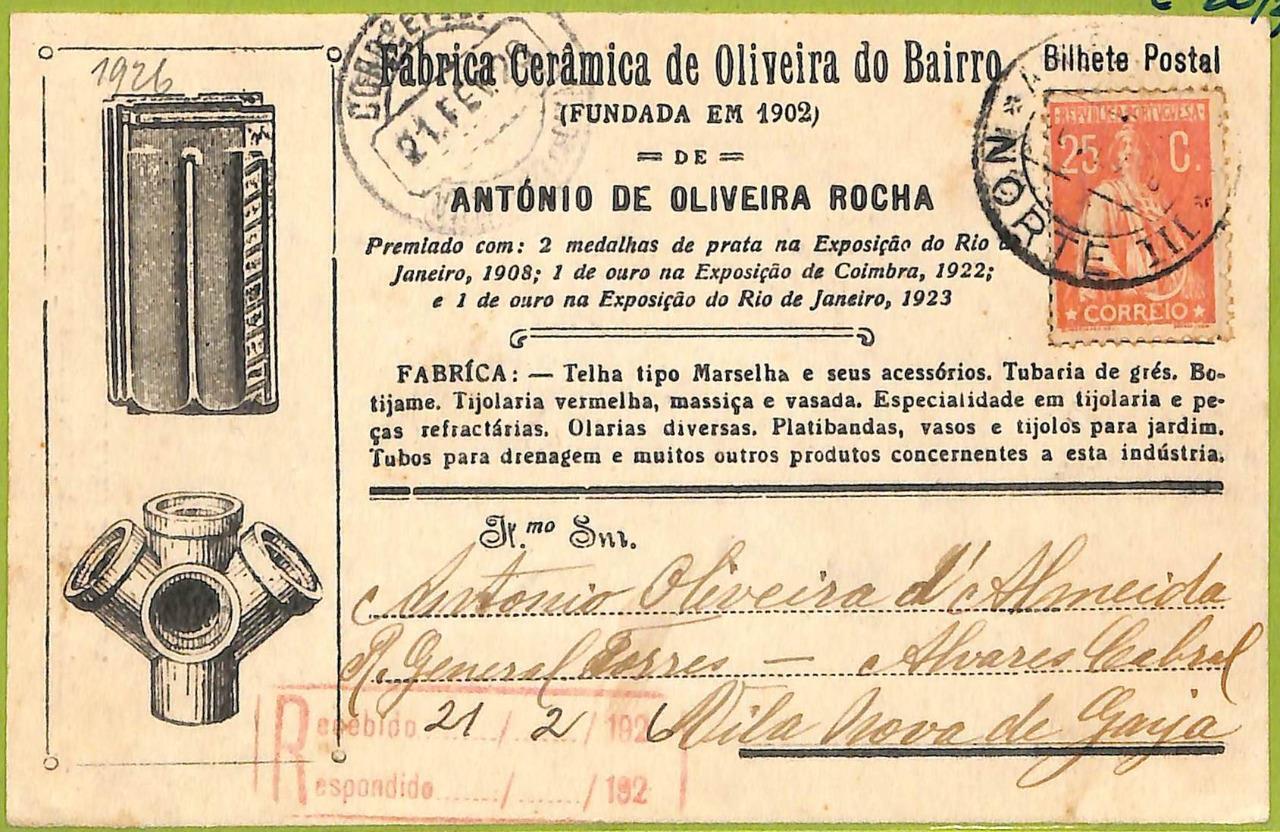 1926
Fábrica Cerâmica de Oliveira do Bairro
Bilhete Postal
(FUNDADA EM 1902)
= DE =
ANTÓNIO DE OLIVEIRA ROCHA
Premiado com: 2 medalhas de prata na Exposição do Rio
Janeiro, 1908; 1 de ouro na Exposição de Coimbra, 1922;
e 1 de ouro na Exposição do Rio de Janeiro, 1923
21. FEV
REPUBLICA PORTUGUESA
25 C.
CORREIO
NORTE III
FABRÍCA: — Telha tipo Marselha e seus acessórios. Tubaria de grés. Bo-
tijame. Tijolaria vermelha, massiça e vasada. Especialidade em tijolaria e pe-
ças refractárias. Olarias diversas. Platibandas, vasos e tijolos para jardim.
Tubos para drenagem e muitos outros produtos concernentes a esta indústria.
Snr.
Antonio Oliveira d'Almeida
R. General Torres — Alvares Cabral
Vila Nova de Gaya
Recebido 21 / 2 / 1926
Respondido / / 192